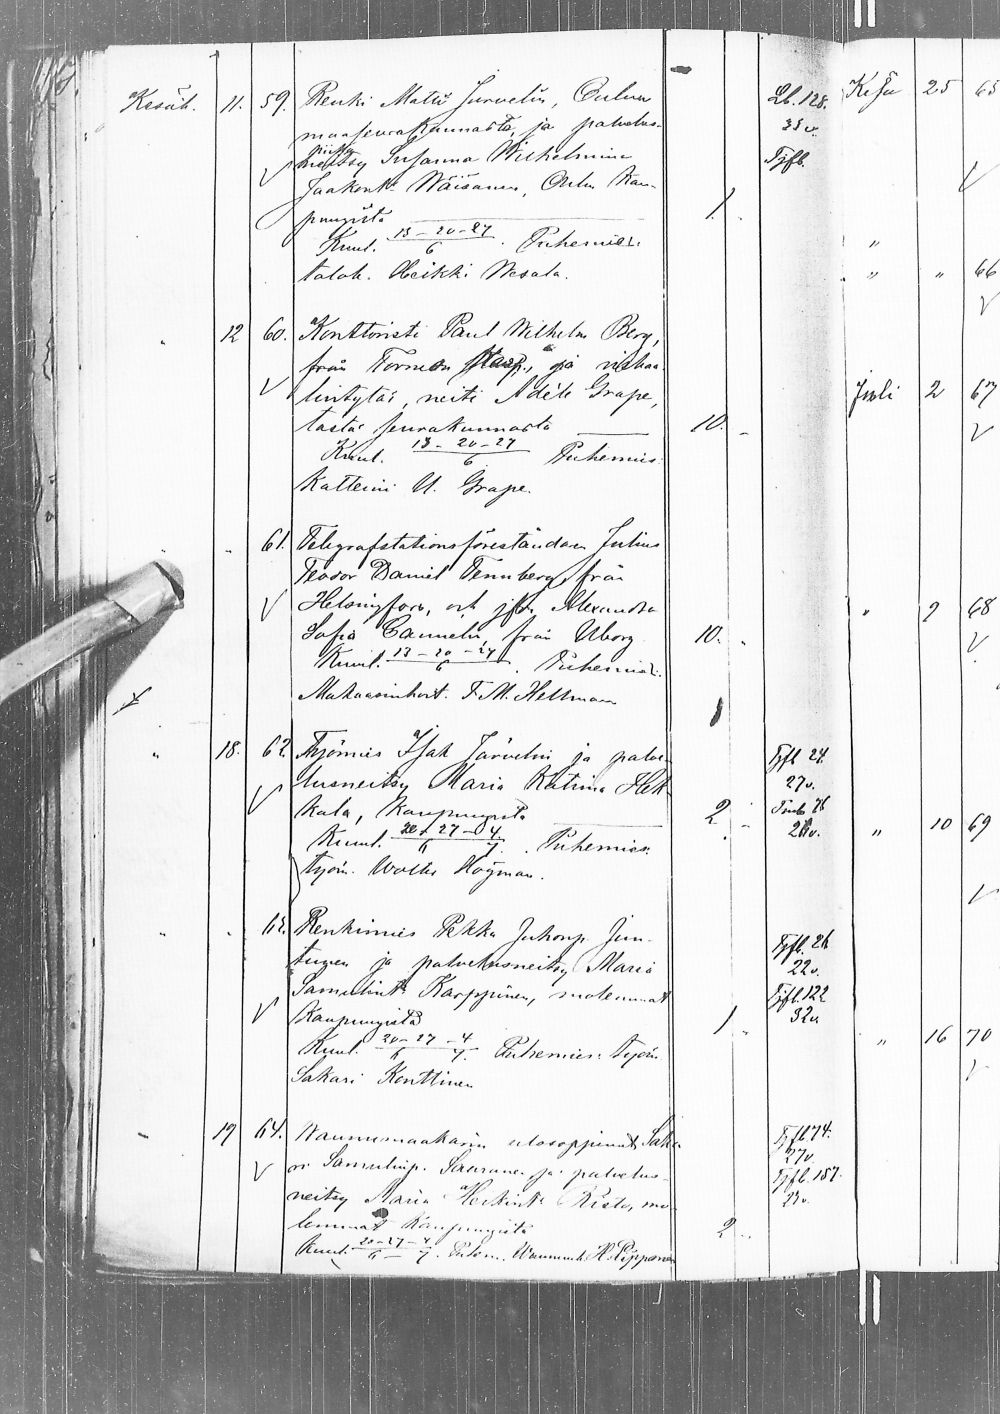 Kesäk. 11. 59. Renki Matti Jurvelin, Oulun
maaseurakunnasta, ja palvelus-
piika
neitsy Susanna Wilhelmina
Jaakont. Wäisänen, Oulu Kau-
pungista
Kuul. 13-20-27/6. Puhemies:
talok. Heikki Wesala.
1
Lb. 128.
33 v.
Tjfb.
12 60. Konttoristi Paul Wilhelm Berg,
från Torneå, ja
neiti Adèle Grape,
tästä seurakunnasta
Kuul. 13-20-27/6 Puhemies:
Katteini U. Grape.
10. -
" " 61. Telegrafstationsföreståndaren Julius
Teodor Daniel Tennberg från
Helsingfors, och jfr. Alexandra
Sofia Cannelin, från Uborg
Kuul. 13-20-27/6. Puhemies:
Makasiinhoit. F. M. Hellman
10. "
" 18. 62. Työmies Isak Järvelin ja palve-
lusneitsy Maria Katrina Hek-
kala, Kaupungista
Kuul. 20-27-4/6 7. Puhemies:
työm. Wolter Högman.
2 -
Tjfb 24.
27v.
26v.
" " 63. Renkimies Pekka Juhonp. Jun-
tunen ja palvelusneitsy Maria
Samulint. Karppinen, molemmat
Kaupungista
Kuul. 20-27-4/6 7. Puhemies: työm.
Sakari Konttinen
1 "
Tjfb. 26
22v.
Tjfb. 122
32v
" 19 64. Waunumaakarin ulosoppinut Saka-
ri Samulinp. Saarane ja palvelus-
neitsy Maria Heikint. Risto, mo-
lemmat Kaupungista
Kuul. 20-27-4/6 - 7. Puhem. H. Pipponen
2 "
Tjfb 74.
27v
Tjfb. 157.
23v.
Kesä 25 65
"
" " 66
Juli 2 67
" 9 68
" 10 69
" 16 70